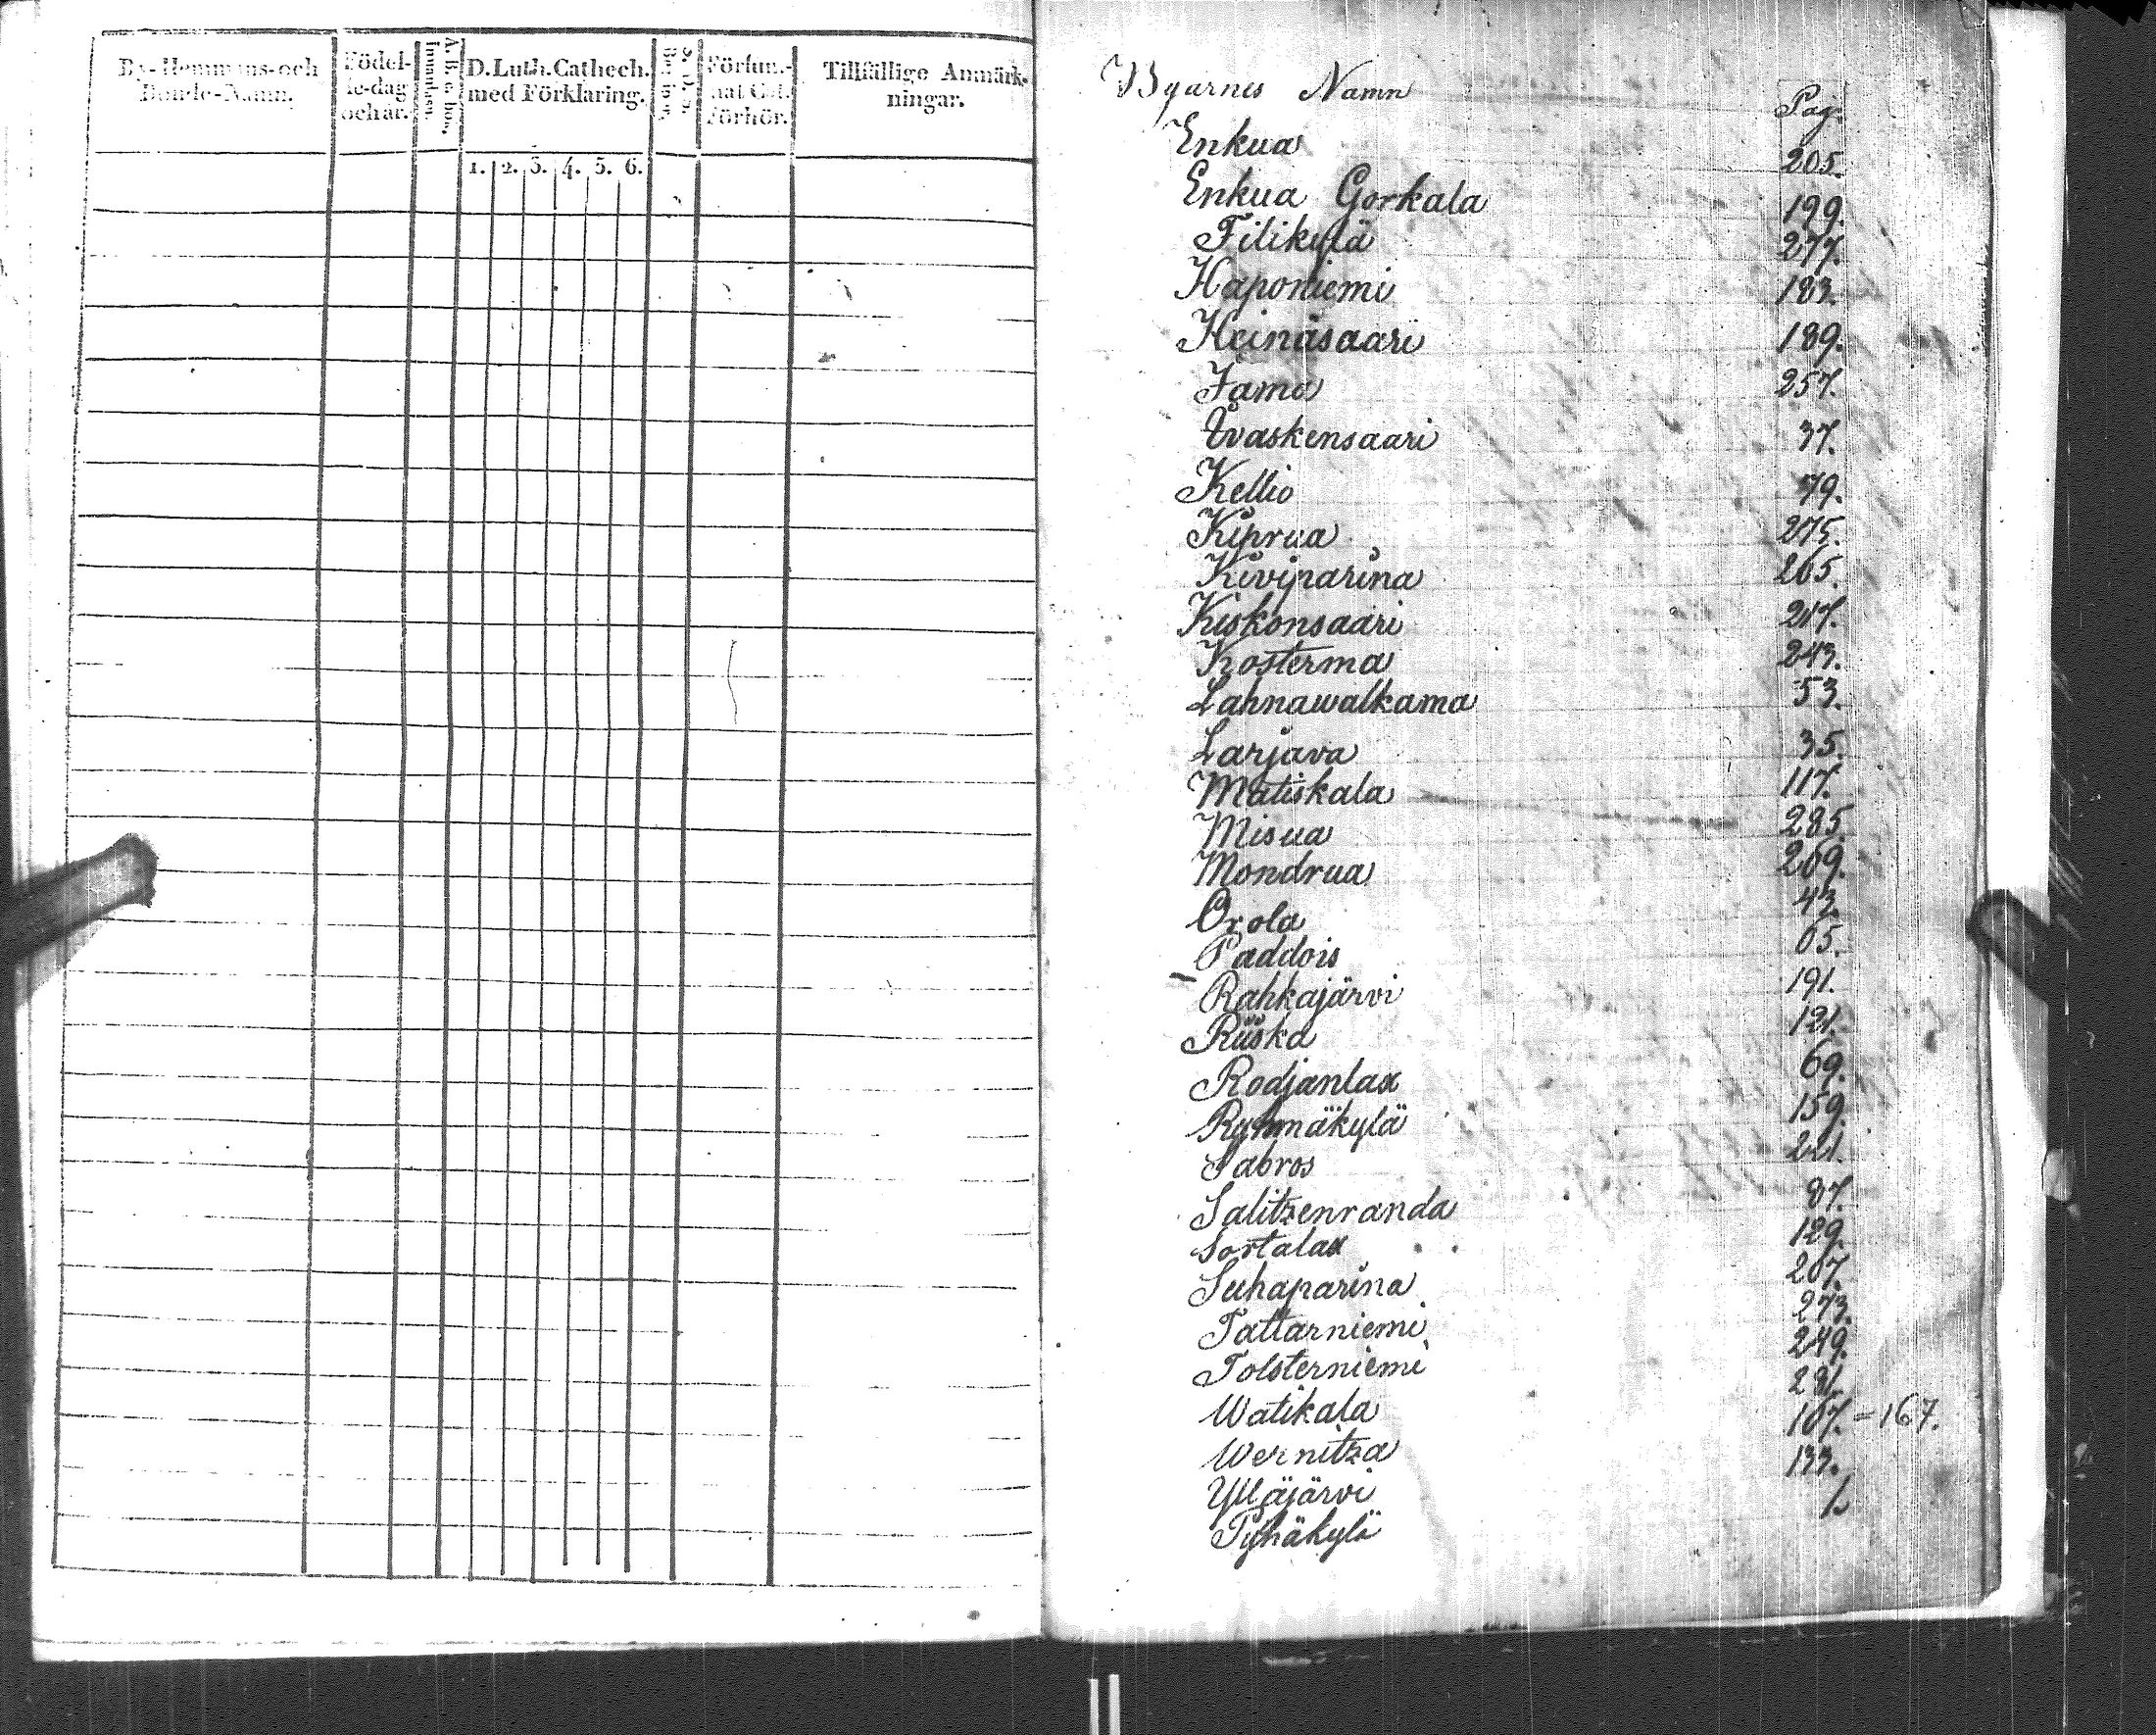 By-Hemmans-och
Bonde-Namn.
Födel-
se-dag
och år.
A. B. c. bok,
innanläsn.
D. Luth. Cathech.
med Förklaring.
1. 2. 3. 4. 5. 6.
Försum-
nat Cat.
Förhör.
Tillfällige Anmärk-
ningar.
Byarnes Namn Pag.
Enkua 205.
Enkua Gorkala 199.
Filikylä 277.
Haponiemi 183.
Heinäsaari 189.
Jama 257.
Ivaskensaari 37.
Kellio 79.
Kiprua 275.
Kiviparina 265.
Kiskonsaari 217.
Kosterma 243.
Lahnawalkama 53.
Larjava 35.
Matiskala 117.
Misua 285.
Mondrua 269.
Orola 43.
Paddois 65.
Rahkajärvi 191.
Riiska 121.
Rodjanlax 69.
Ryhmäkylä 159.
Sabros 221.
Salitzenranda 87.
Sortalax 129.
Suhaparina 267.
Tattarniemi 273.
Tolsterniemi 249.
Watikala 281.
Wernitza 107. = 167.
Ylläjärvi 133.
Pyhäkylä 1.